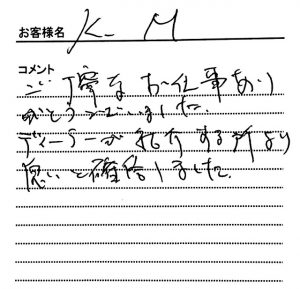 お客様名 K M
コメント
ご丁寧なお仕事あり
がとうございました。
ディーラーが紹介する所より
良いと確信しました。